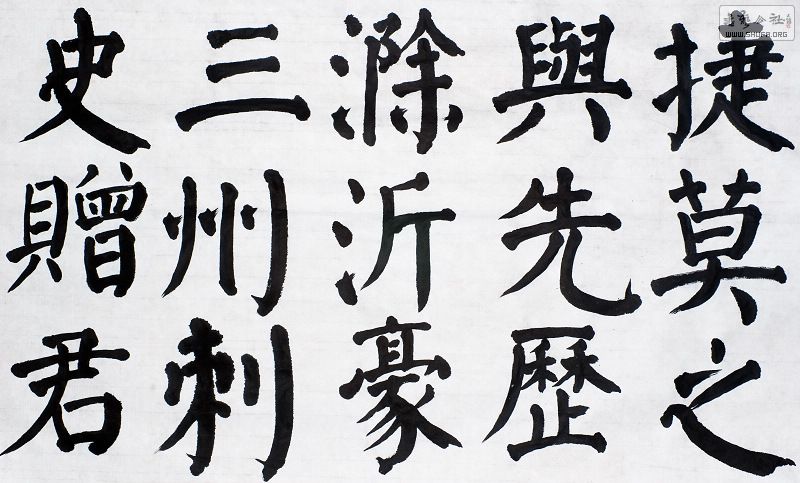 捷莫之
與先歷
滁沂豪
三州刺
史贈君
WWW.SHUFA.ORG